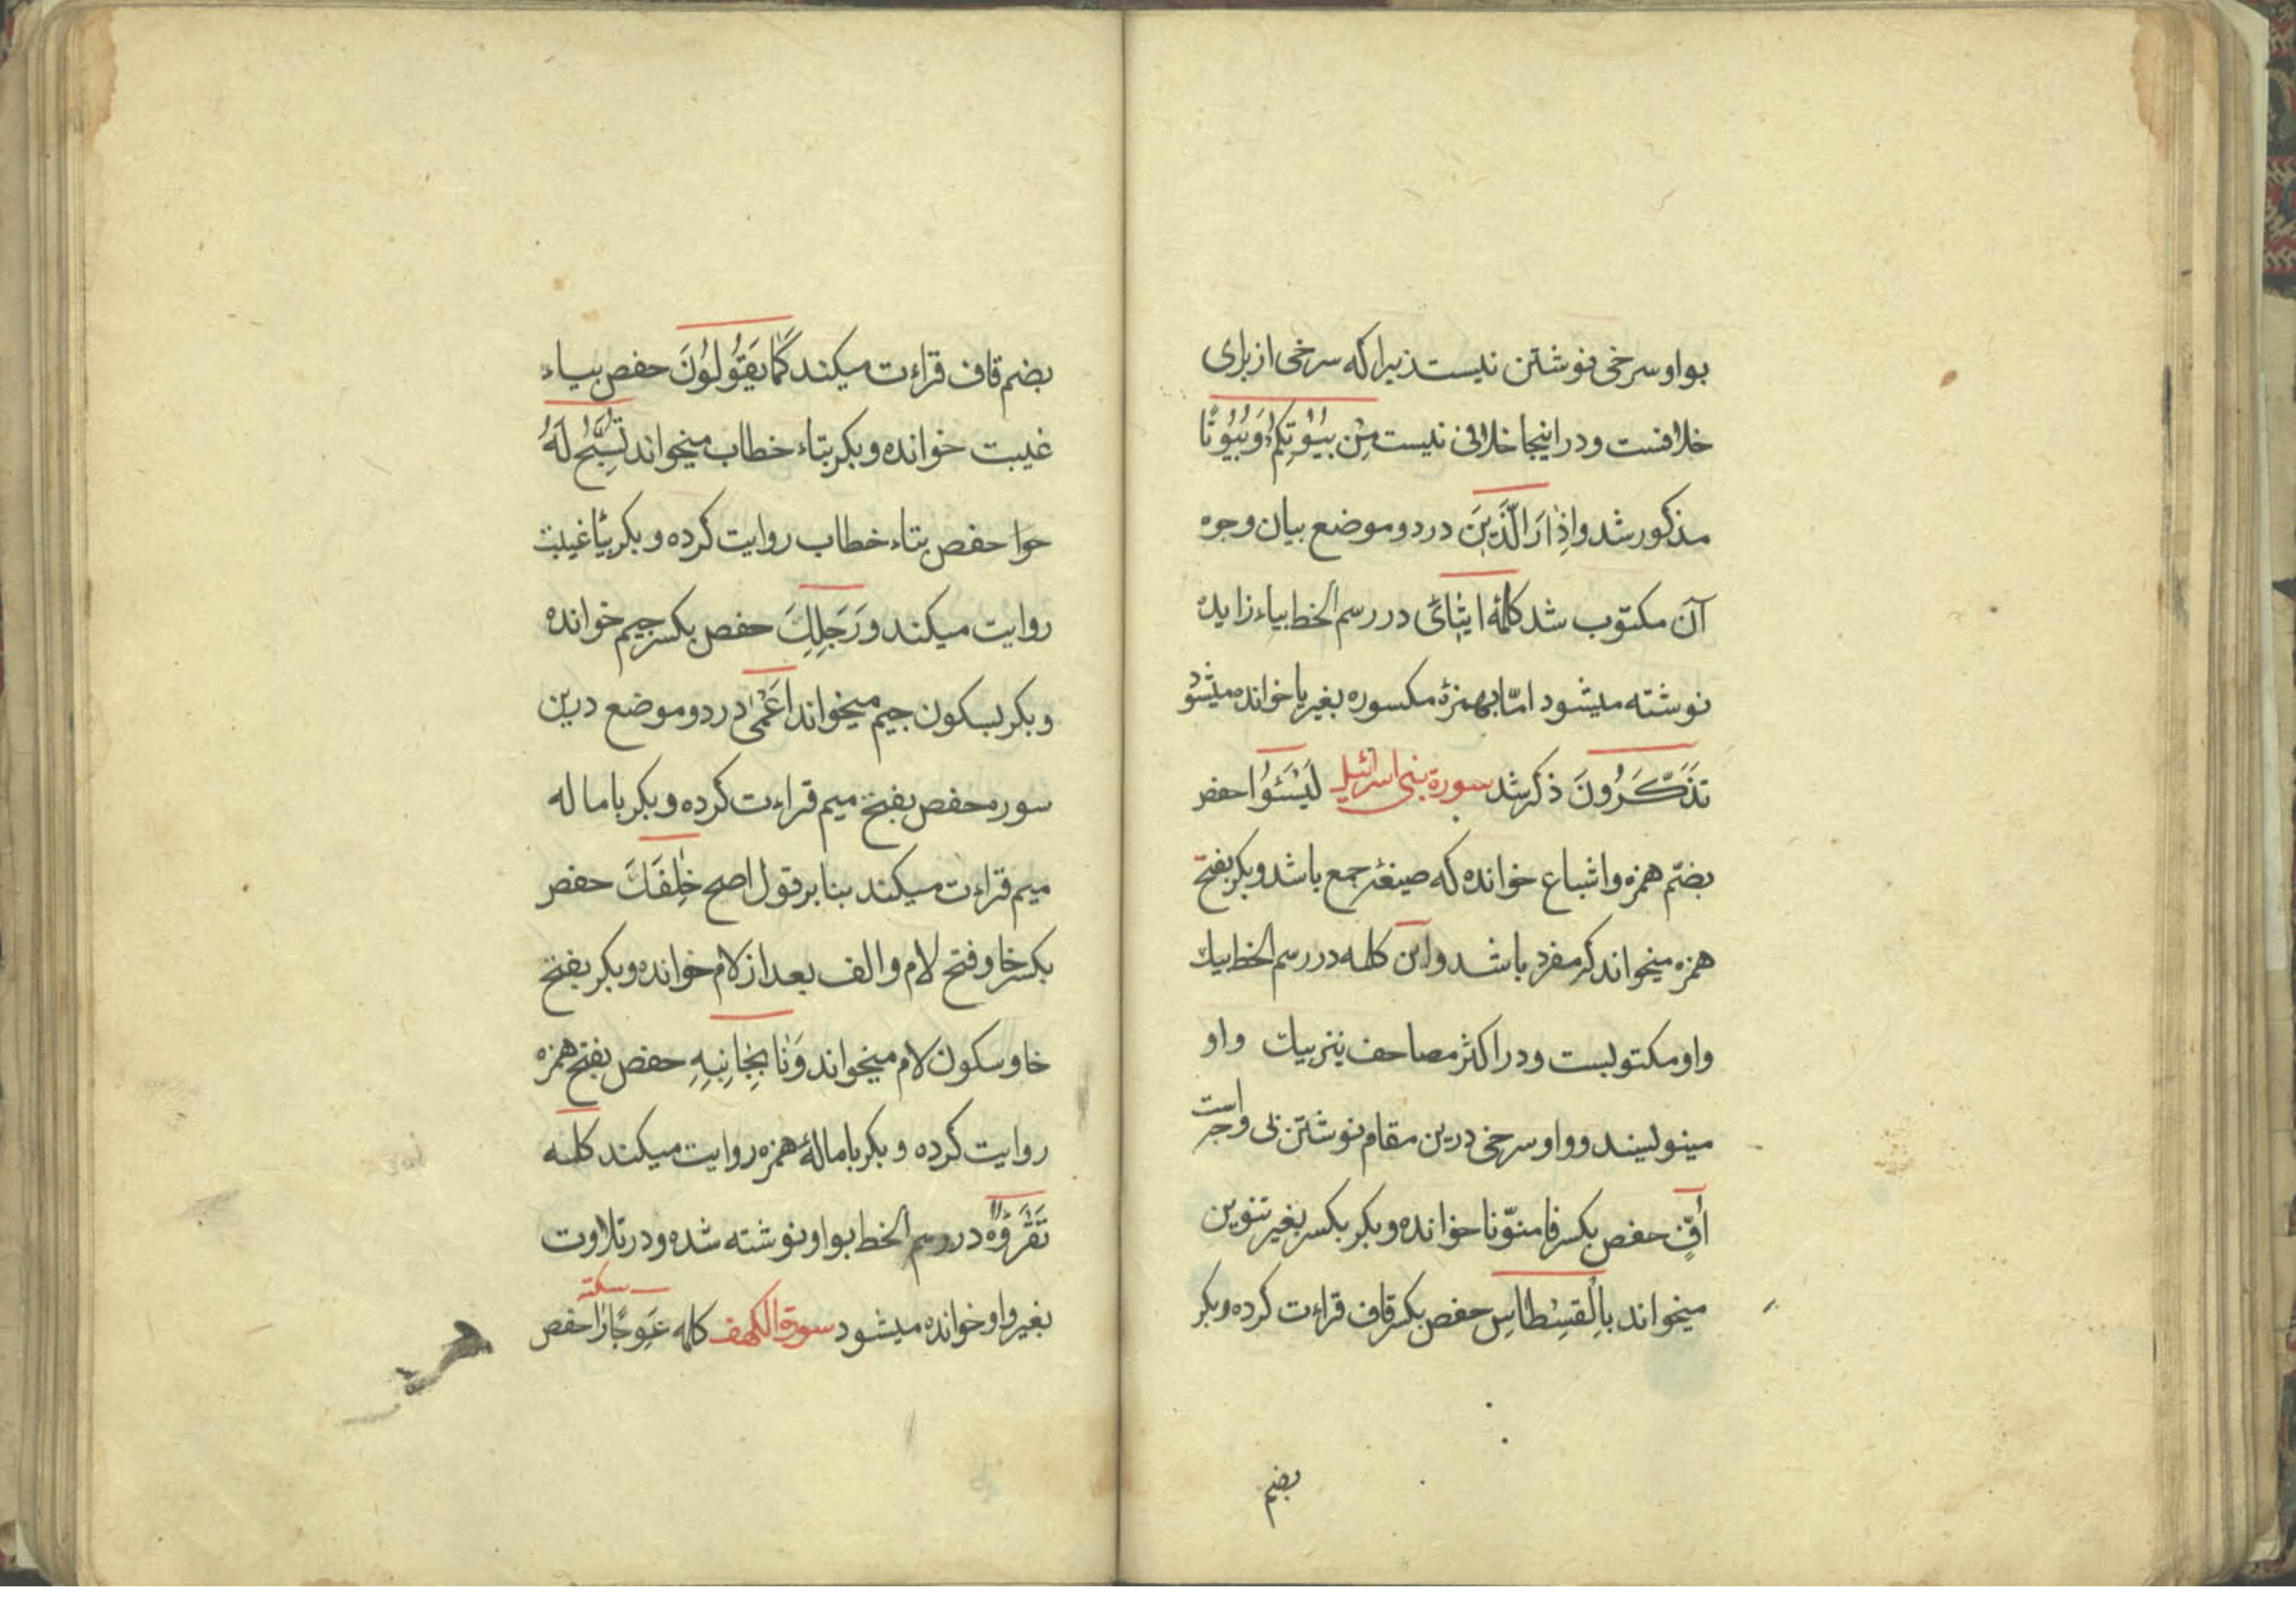 بواو سرخی نوشتن نیست زیرا که سرخی از برای
خلافست و در اینجا خلافی نیست مِنْ بُیُوْتِکُمْ وَ بُیُوتًا
مذکور شد و اِذٰا رَاَلَّذینَ در دو موضع بیان وجوه
آن مکتوب شد کلمۀ ایتٰائ در رسم الخط بیاء زایده
نوشته میشود امّا بهمزۀ مکسوره بغیر یا خوانده میشود
تَذَکَّرُونَ ذکر شد سورة بنی اسرائیل لَیَسُئوُا حفص
بضمّ همزه و اشباع خوانده که صیغۀ جمع باشد و بکر بفتح
همزه میخواند که مفرد باشد و این کلمه در رسم الخط بیك
واو مکتوبست و در اکثر مصاحف نیز بیك واو
مینویسند و واو سرخی درین مقام نوشتن بی وجه است
اُفٍّ حفص بکسر فا منوّنا خوانده و بکر بکسر بغیر تنوین
میخواند بِالْقِسْطٰاسِ حفص بکسر قاف قراءت کرده و بکر
بضم
بضم قاف قراءت میکند کَمٰا یَقُولُونَ حفص بیاء
غیبت خوانده و بکر بتاء خطاب میخواند تُسَبِّحُ لَهُ
حوا حفص بتاء خطاب روایت کرده و بکر بیاء غیبت
روایت میکند وَ رَجِلِكَ حفص بکسر جیم خوانده
و بکر بسکون جیم میخواند اَعْمٰی در دو موضع درین
سوره حفص بفتح میم قراءت کرده و بکر باماله
میم قراءت میکند بنا بر قول اصح خِلٰفَكَ حفص
بکسر خا و فتح لام و الف بعد از لام خوانده و بکر بفتح
خا و سکون لام میخواند وَ نَاٰ بِجٰانِبِهِ حفص بفتح همزه
روایت کرده و بکر بامالۀ همزه روایت میکند کلمه
نَقْرَؤُهُ در رسم الخط بواو نوشته شده و در تلاوت
بغیر واو خوانده میشود سورة الکهف کلمه عِوَجًا را حفص
سکته